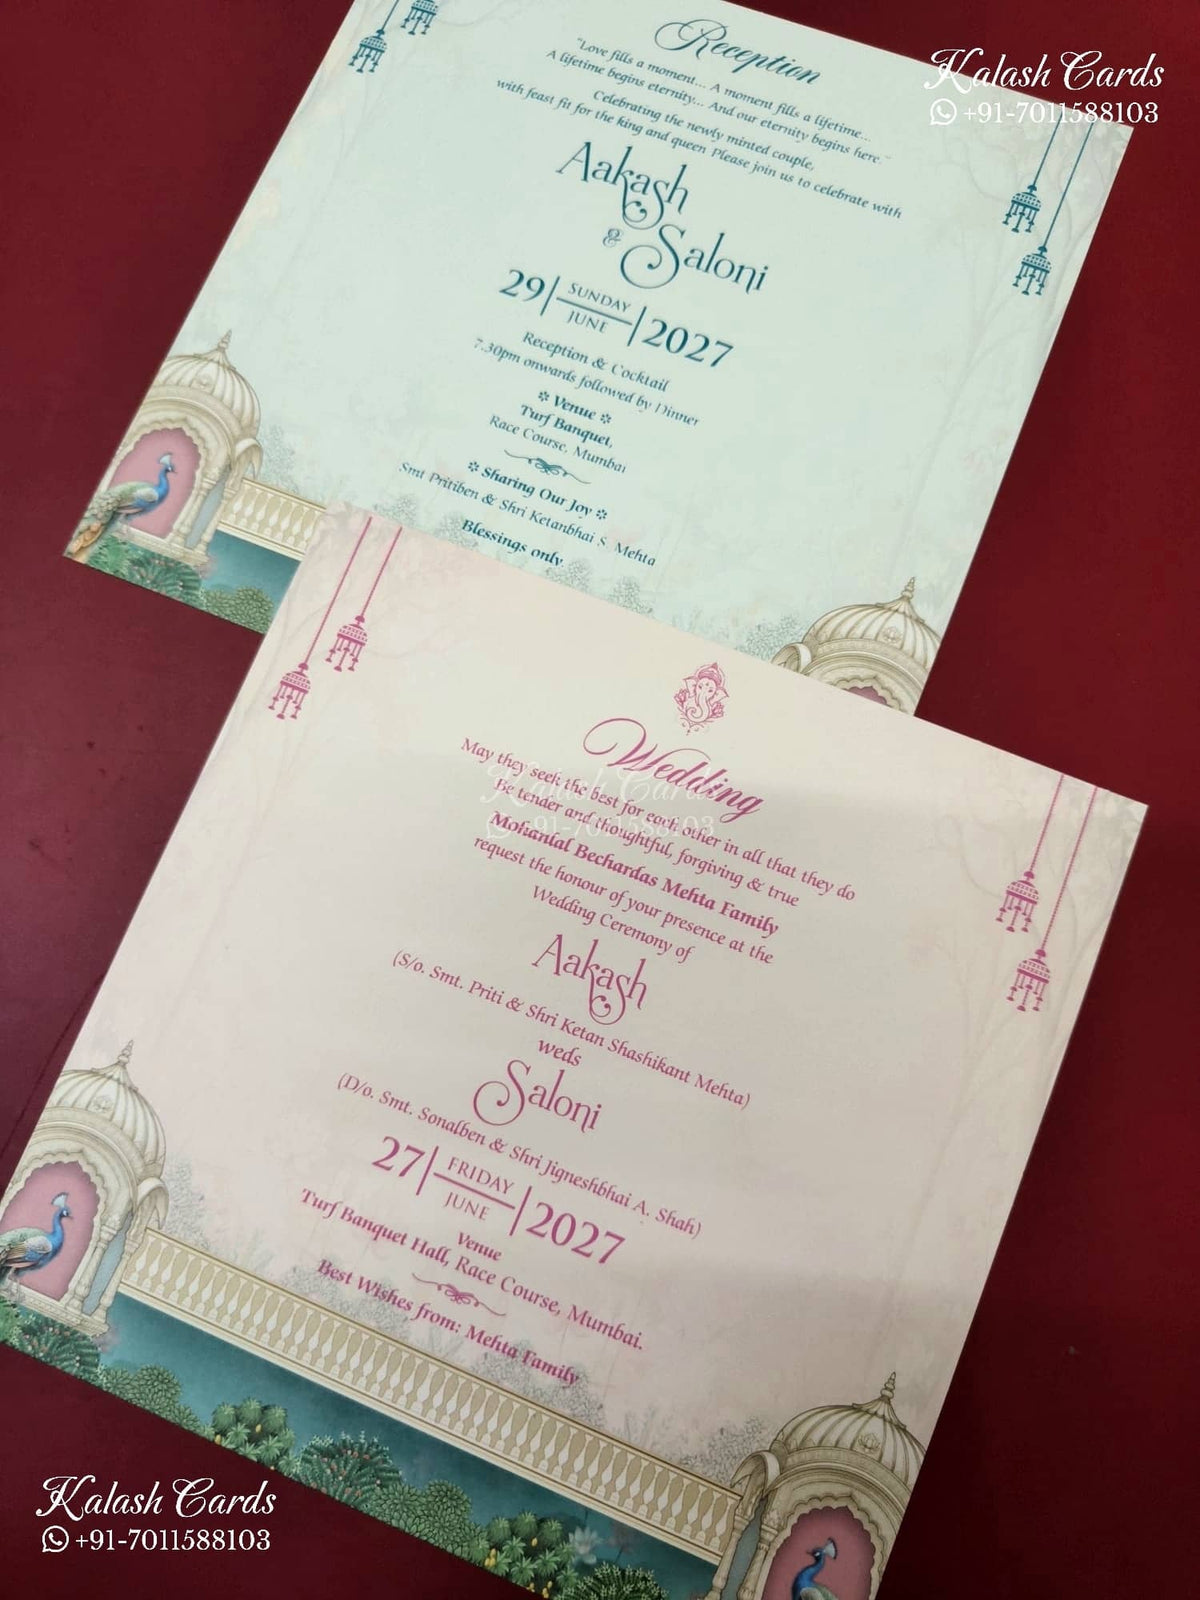 Kalash Cards
+91-7011588103
Reception
"Love fills a moment... A moment fills a lifetime...
A lifetime begins eternity... And our eternity begins here."
Celebrating the newly minted couple,
with feast fit for the king and queen Please join us to celebrate with
Aakash
&
Saloni
29 | SUNDAY
JUNE | 2027
Reception & Cocktail
7.30pm onwards followed by Dinner
Venue
Turf Banquet,
Race Course, Mumbai
Sharing Our Joy
Smt Pritiben & Shri Ketanbhai S. Mehta
Blessings only.
Wedding
May they seek the best for each other in all that they do
Be tender and thoughtful, forgiving & true
Mohanlal Bechardas Mehta Family
request the honour of your presence at the
Wedding Ceremony of
Aakash
(S/o. Smt. Priti & Shri Ketan Shashikant Mehta)
weds
Saloni
(D/o. Smt. Sonalben & Shri Jigneshbhai A. Shah)
27 | FRIDAY
JUNE | 2027
Venue
Turf Banquet Hall, Race Course, Mumbai.
Best Wishes from: Mehta Family
Kalash Cards
+91-7011588103
Kalash Cards
+91-7011588103